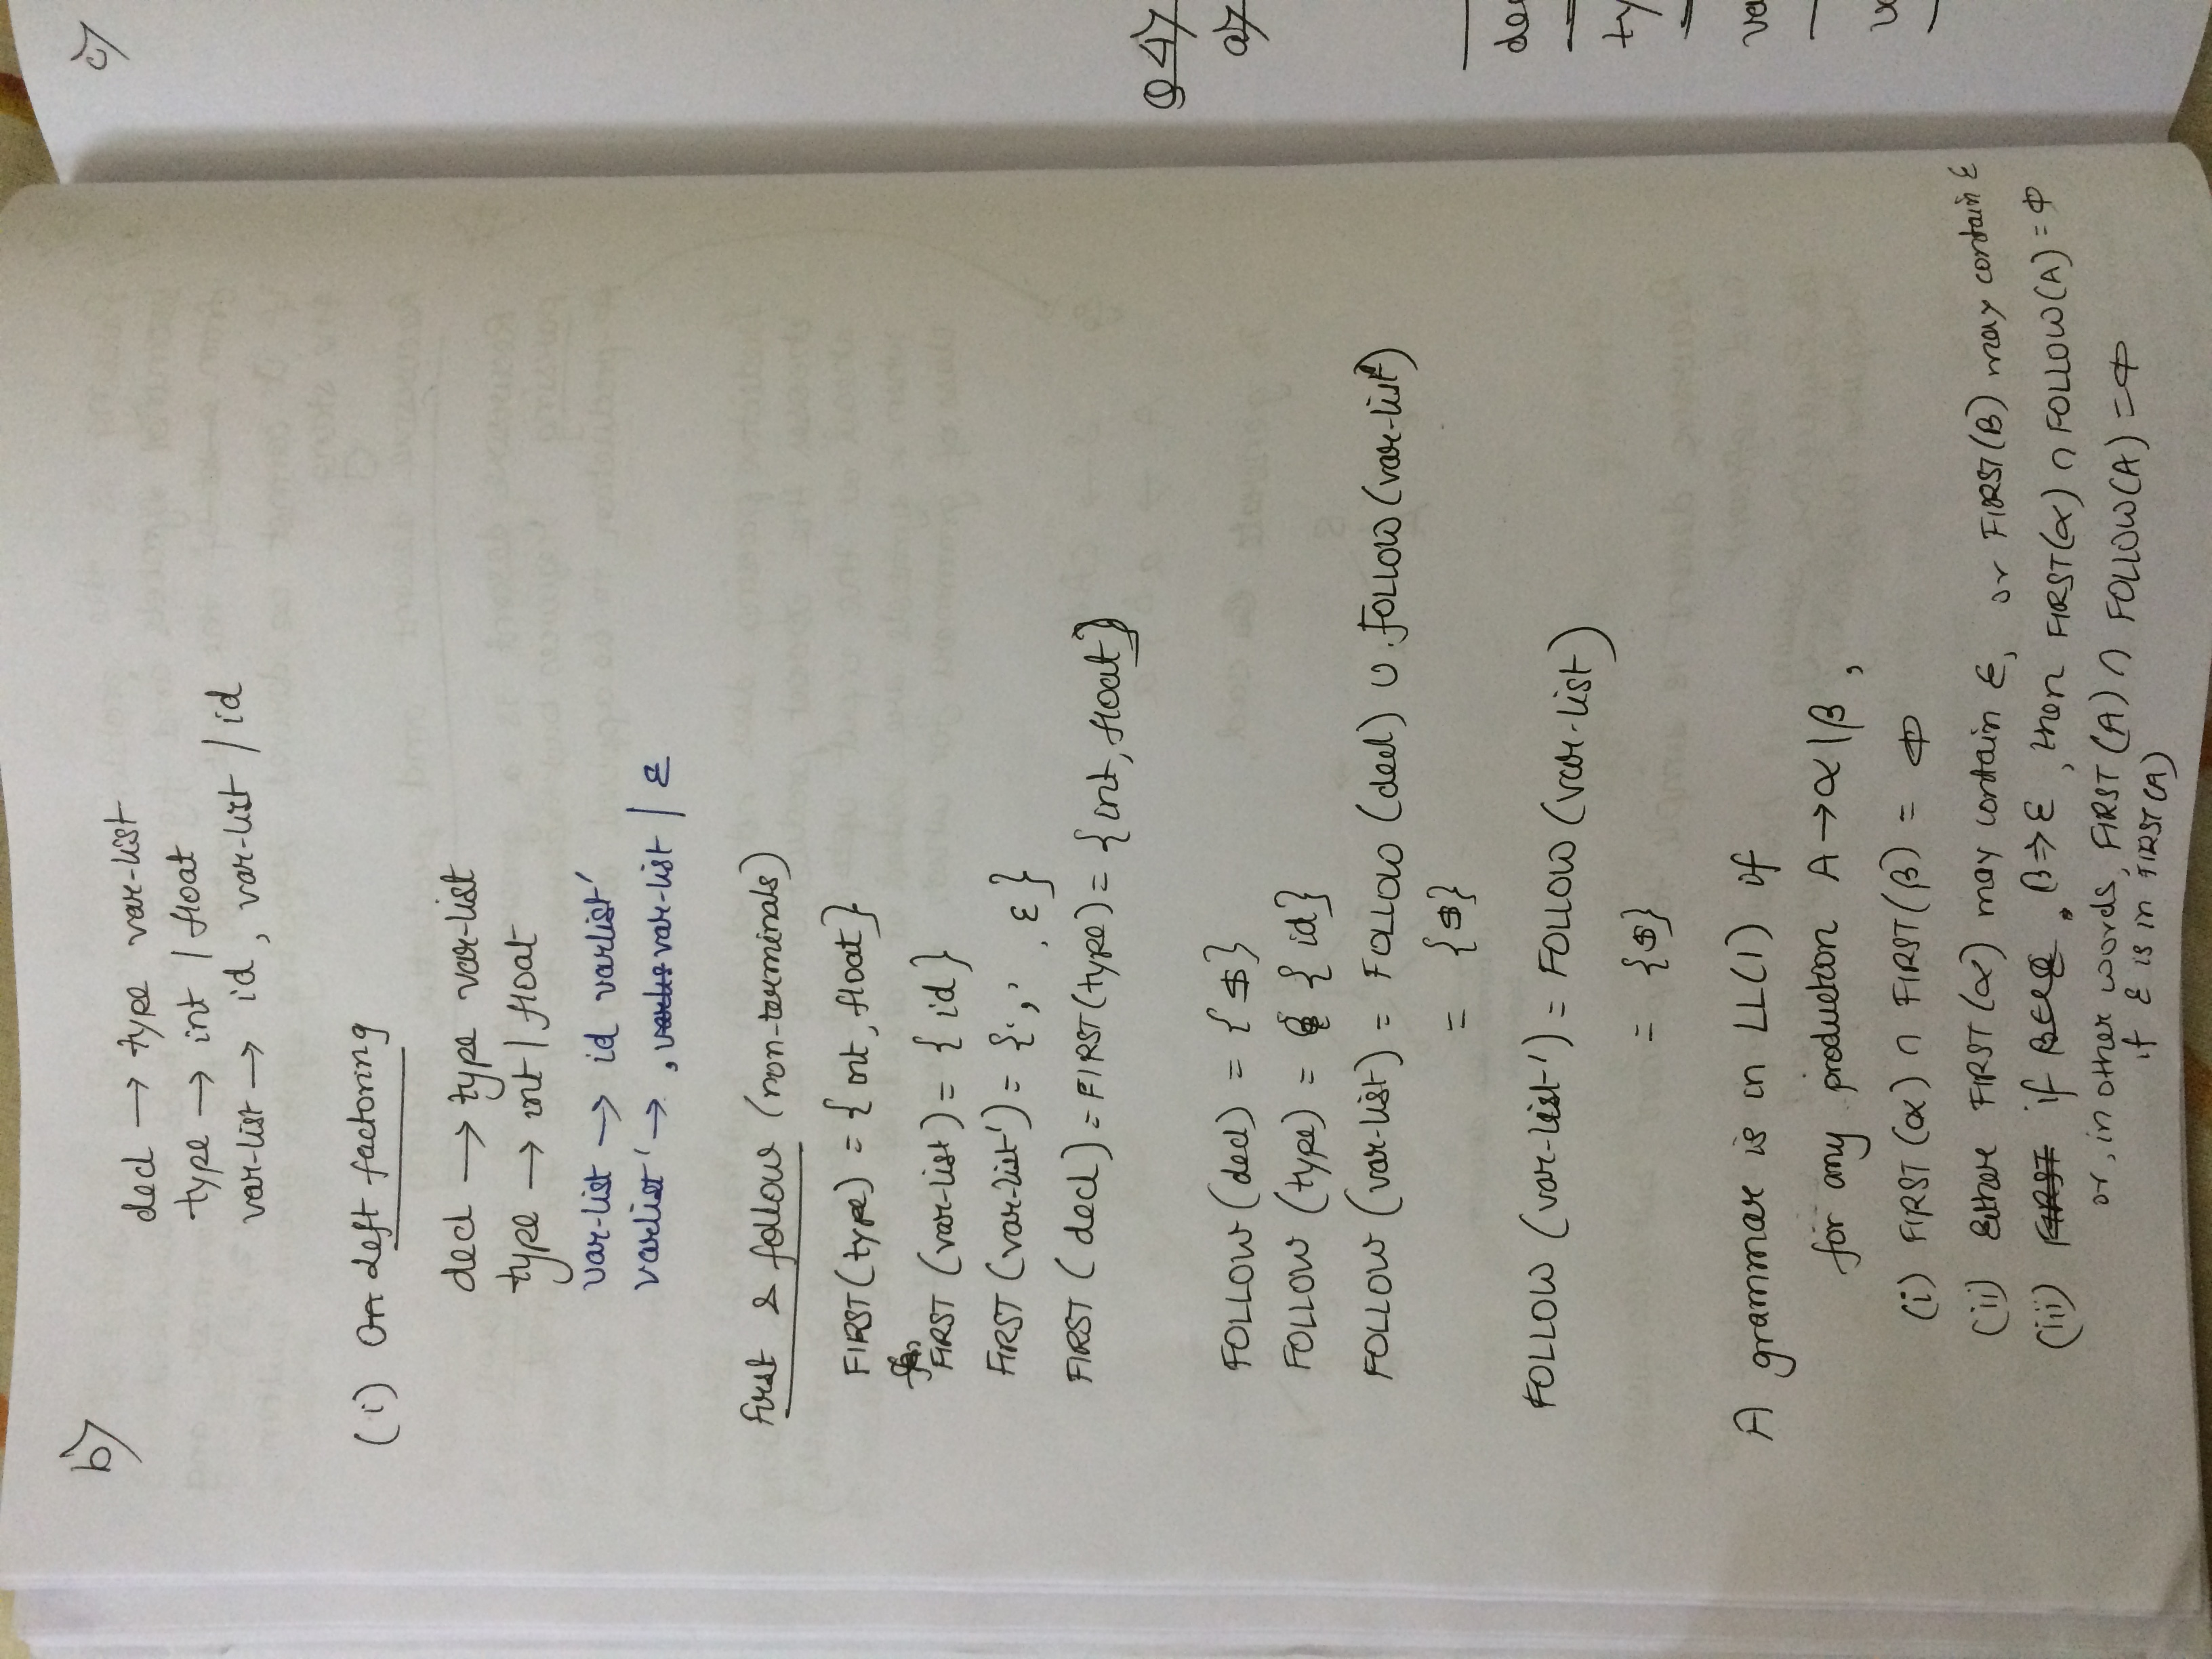 b)
decl → type var-list
type → int | float
var-list → id , var-list | id
(i) On Left factoring
decl → type var-list
type → int | float
var-list → id varlist'
varlist' → , varlis var-list | ε
First & follow (non-terminals)
FIRST (type) = { int, float}
FIRST (var-list) = { id }
FIRST (var-list') = {',' , ε}
FIRST ( decl) = FIRST (type) = {int, float}
FOLLOW (decl) = { $ }
FOLLOW (type) = { id}
FOLLOW (var-list) = FOLLOW (decl) ∪ FOLLOW (var-list')
= {$}
FOLLOW (var-list') = FOLLOW (var-list)
= {$}
A grammar is in LL(1) if
for any production A → α | β ,
(i) FIRST (α) ∩ FIRST (β) = ϕ
(ii) Either FIRST (α) may contain ε, or FIRST (β) may contain ε
(iii) FIRST if β ⇒ ε , then FIRST (α) ∩ FOLLOW (A) = ϕ
or, in other words, FIRST (A) ∩ FOLLOW (A) = ϕ
if ε is in FIRST (A)
c)
Q 4)
a)
de
ty
va
va